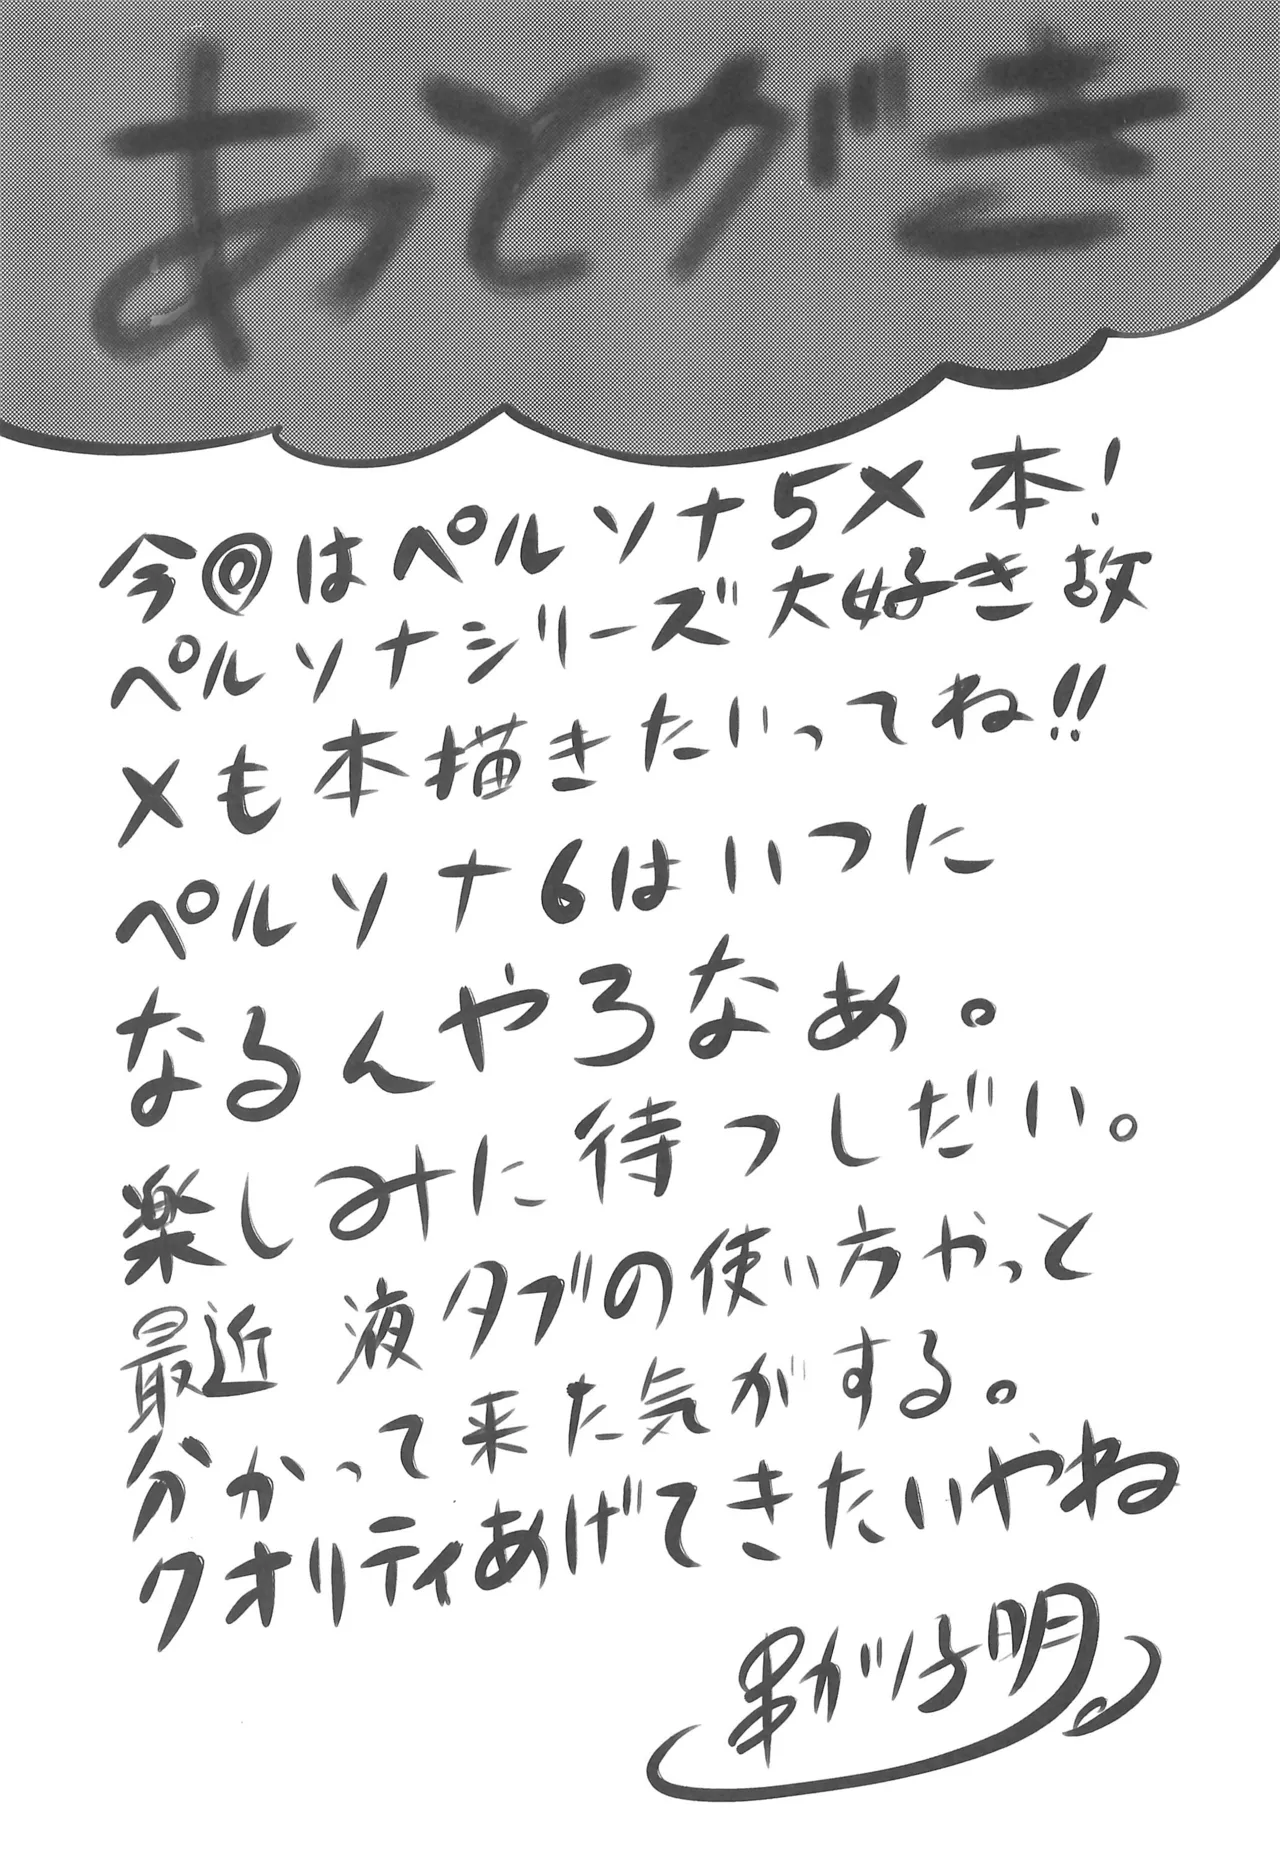 あとがき
今回はペルソナ5X本!
ペルソナシリーズ大好き故
Xも本描きたいってね!!
ペルソナ6はいつに
なるんやろなぁ。
楽しみに待つしだい。
最近 液タブの使い方やっと
分かって来た気がする。
クオリティあげてきたいやね
串がり子明